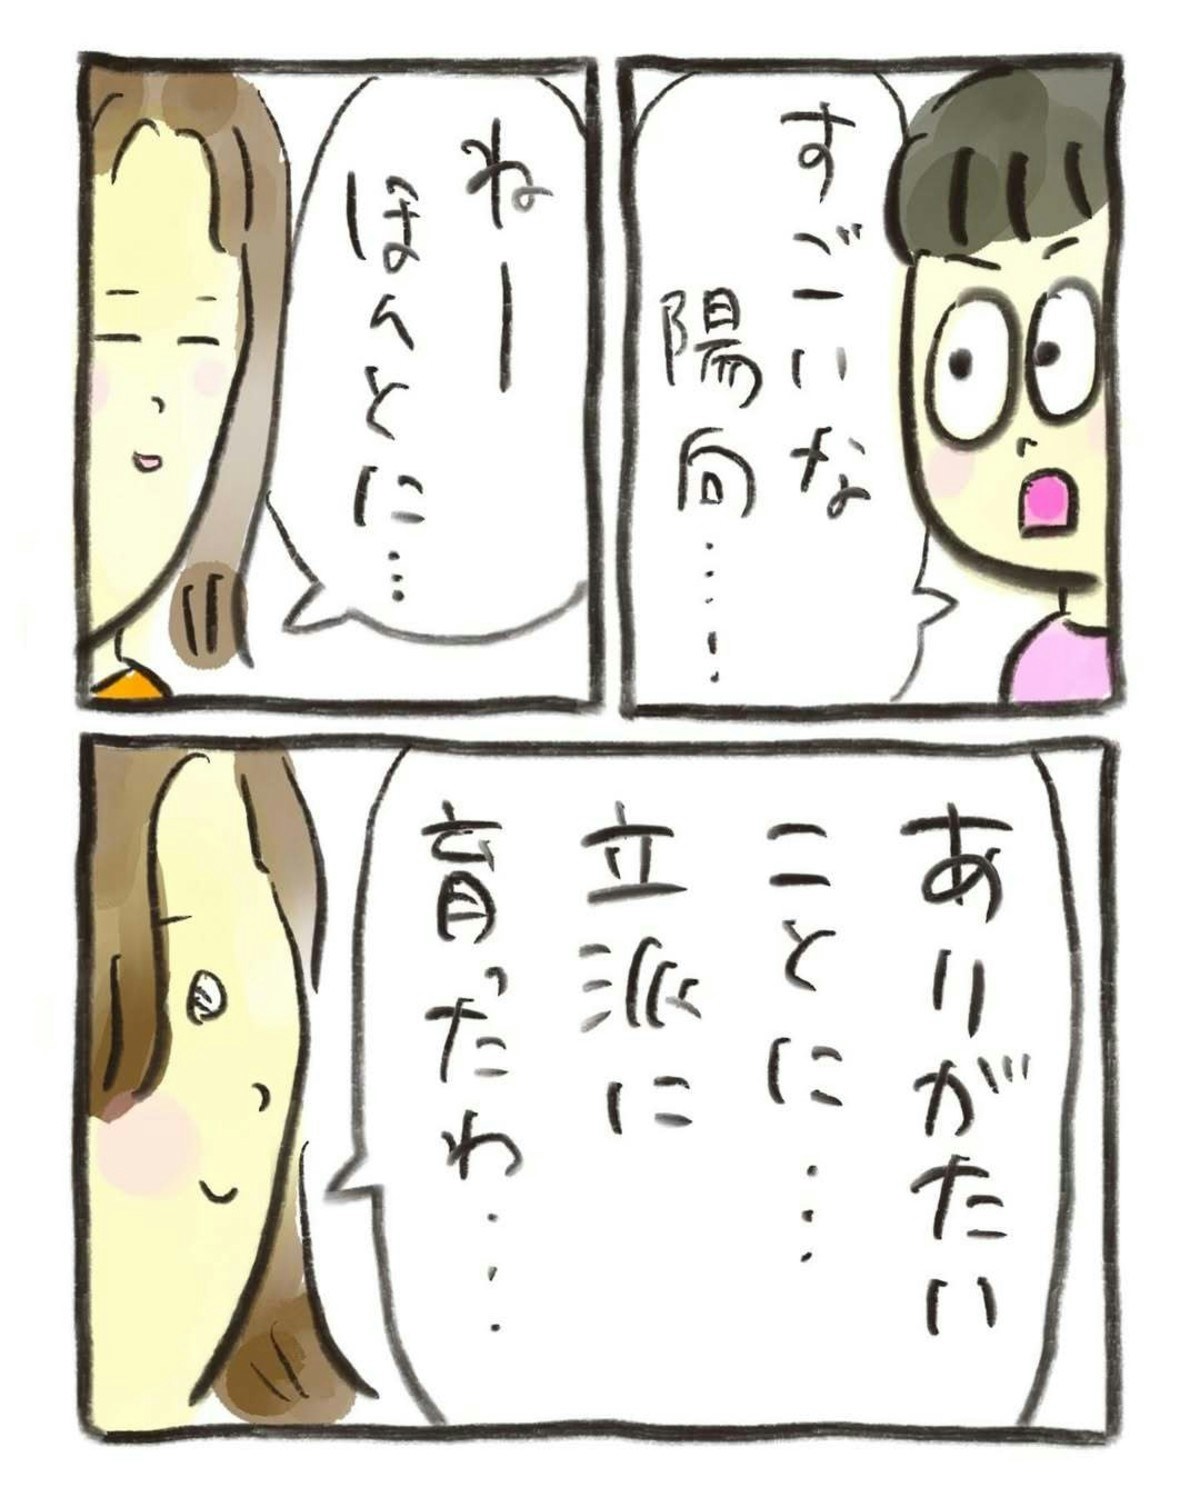 すごいな
陽向……
ねー
ほんとに…
ありがたい
ことに…
立派に
育ったわ…